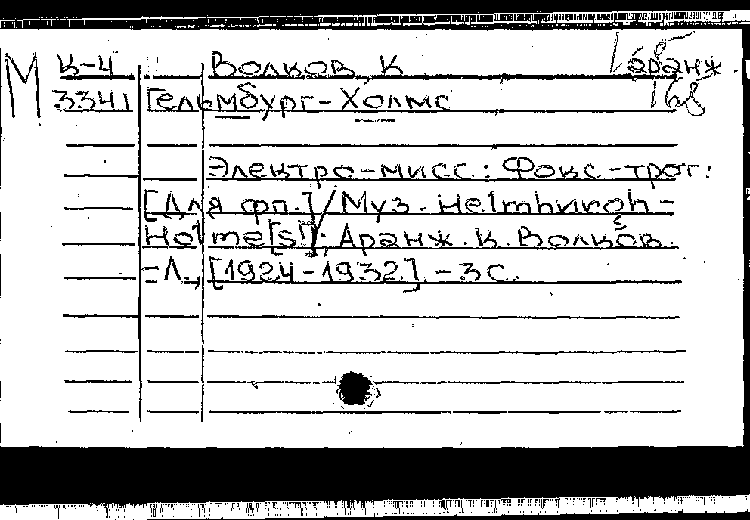 М К-4 Волков, К аранж.
3341 Гельмбург-Холмс 168
Электро-мисс: Фокс-трот:
[Для фп.] / Муз. Helmhurgh-
Holme[s]; Аранж. К. Волков.
-Л., [1924-1932]. -3с.